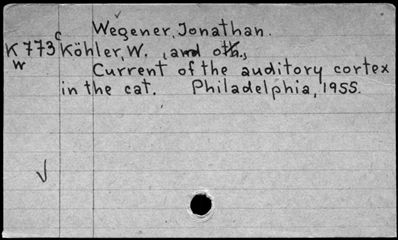 Wegener, Jonathan.
K773 c Köhler, W. , and oth.,
w Current of the auditory cortex
in the cat. Philadelphia, 1955.